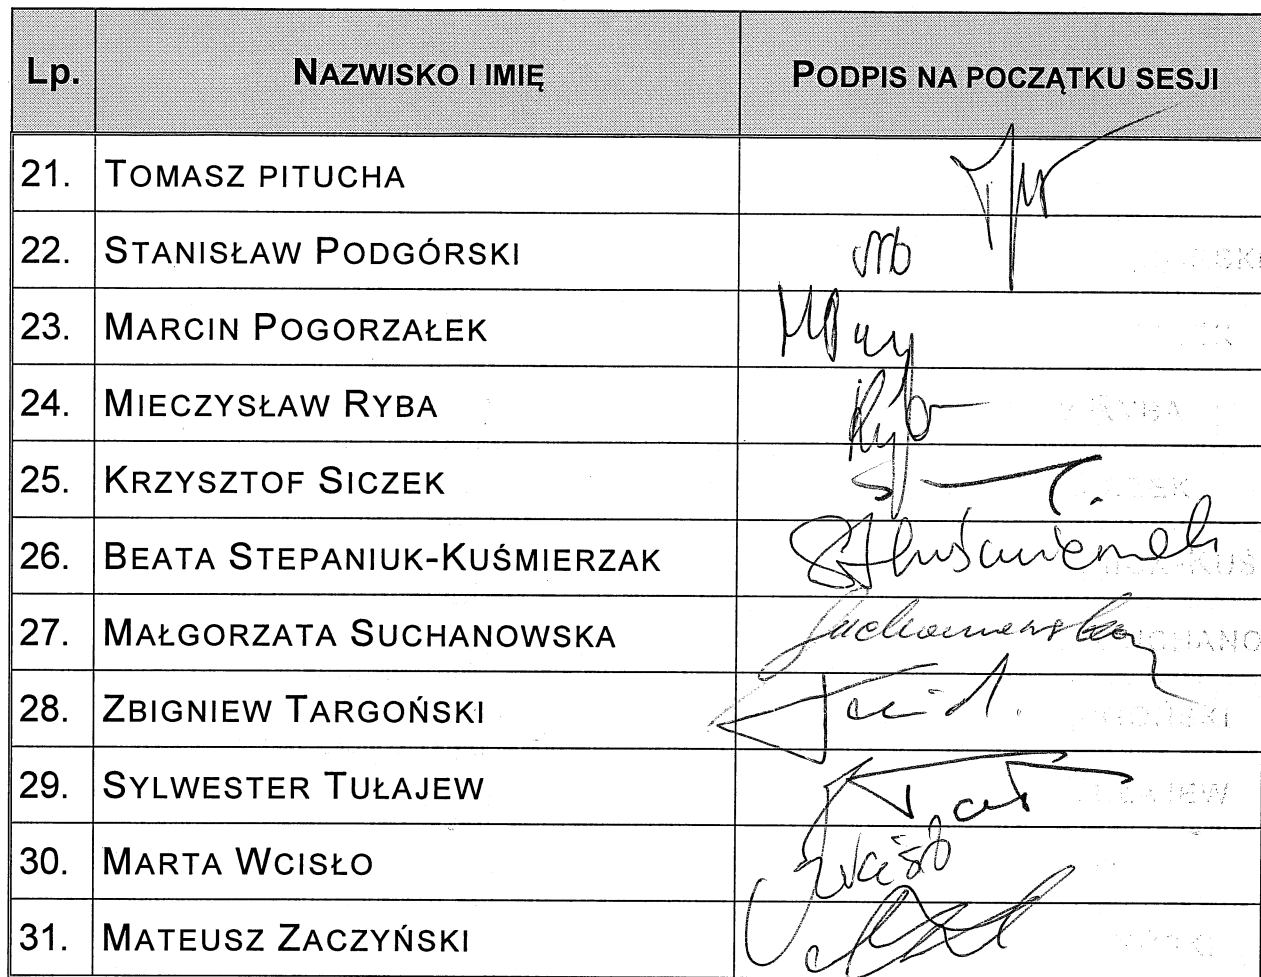 Lp. NAZWISKO I IMIĘ PODPIS NA POCZĄTKU SESJI
21. TOMASZ PITUCHA
22. STANISŁAW PODGÓRSKI
23. MARCIN POGORZAŁEK
24. MIECZYSŁAW RYBA
25. KRZYSZTOF SICZEK
26. BEATA STEPANIUK-KUŚMIERZAK
27. MAŁGORZATA SUCHANOWSKA Suchanowska
28. ZBIGNIEW TARGOŃSKI
29. SYLWESTER TUŁAJEW
30. MARTA WCISŁO Wcisło
31. MATEUSZ ZACZYŃSKI